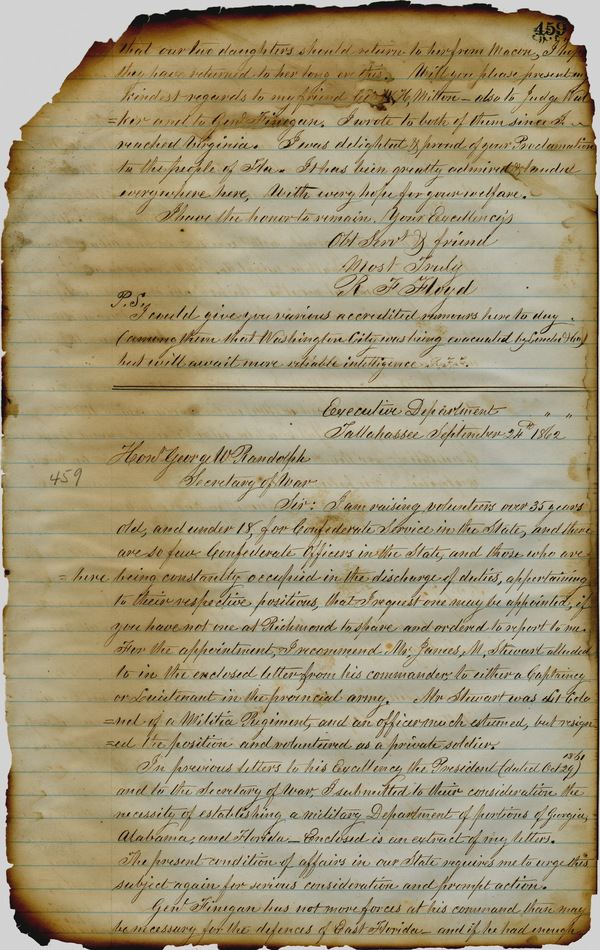 459
that our two daughters should return to her from Macon, I hope
they have returned to her long ere this. Will you please present my
kindest regards to my friend W. H. Milton - also to Judge Wal
=ker and to Genl Finegan. I wrote to both of them since I
reached Virginia. I was delighted & proud of your Proclamation
to the people of Fla. It has been greatly admired & lauded
everywhere here, With every hope for your welfare.
I have the honor to remain, Your Excellency's
Obt Servt & friend
Most Truly
R F Floyd
P.S.
I could give you various accredited rumours here to day
(among them that Washington City was being evacuated by Lincoln &Co)
but will await more reliable intelligence R.F.F.
Executive Department " "
Tallahassee September 24th 1862
Hon George W Randolph
459
Secretary of War
Sir: I am raising volunteers over 35 years
old, and under 18, for Confederate Service in the State, and there
are so few Confederate Officers in the State, and those who are
=here being constantly occupied in the discharge of duties, appertaining
to their respective positions, that I request one may be appointed, if
you have not one at Richmond to spare and ordered to report to me.
For the appointment, I recommend Mr James, M, Stewart alluded
to in the enclosed letter from his commander to either a Captaincy
or Lieutenant in the provincial army. Mr Stewart was Lt Colo
=nel of a Militia Regiment, and an officer much esteemed, but resign
=ed the position and volunteered as a private soldier.
In previous letters to his Excellency the President (dated Oct 29) 1861
and to the Secretary of War, I submitted to their consideration the
necessity of establishing a military Department of portions of Georgia,
Alabama, and Florida - Enclosed is an extract of my letters.
The present condition of affairs in our State requires me to urge this
subject again for serious consideration and prompt action.
Genl Finegan has not more forces at his command than may
be necessary for the defences of East Florida and if he had enough